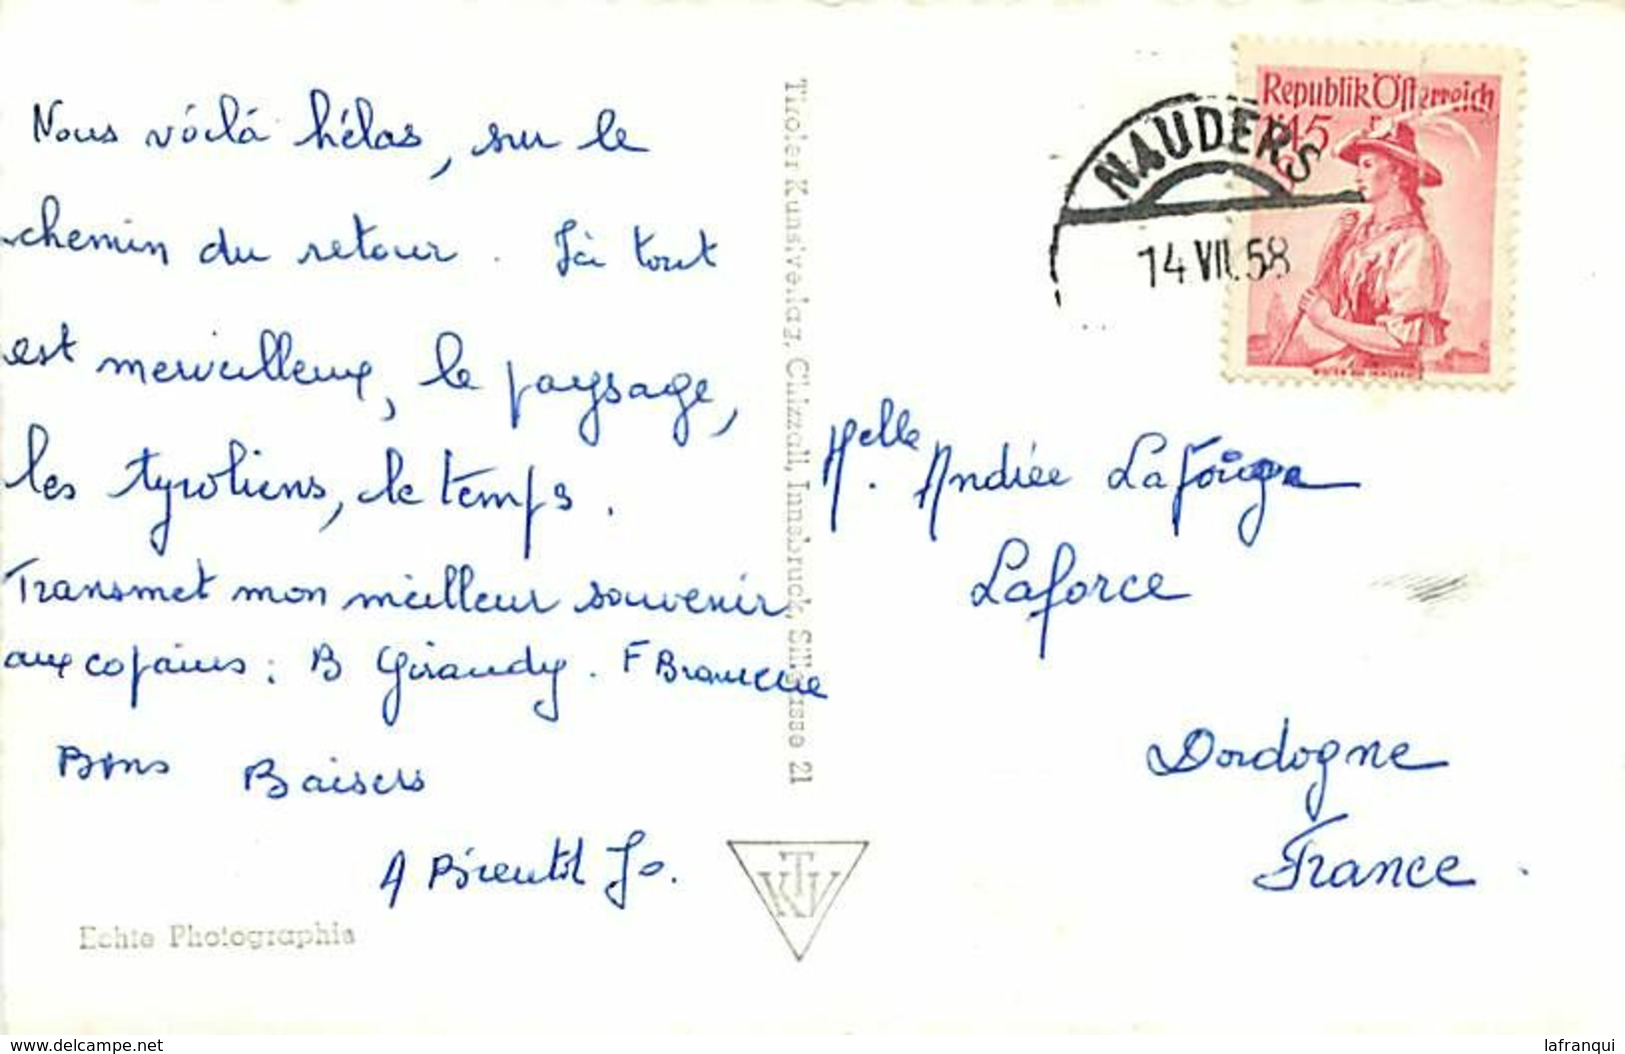 Nous voilà hélas, sur le
chemin du retour. Ici tout
est merveilleux, le paysage,
les tyroliens, le temps.
Transmet mon meilleur souvenir
aux copains : B Giraudy. F
Bons Baisers
A Bientôt Jo.
Echte Photographie
Tiroler Kunstverlag, Chizzali, Innsbruck, Sillgasse 21
TKV
NAUDERS
14.VII.58
Republik Österreich
1.45
Melle. Andrée
Laforce
Dordogne
France.
www.delcampe.net
lafranqui